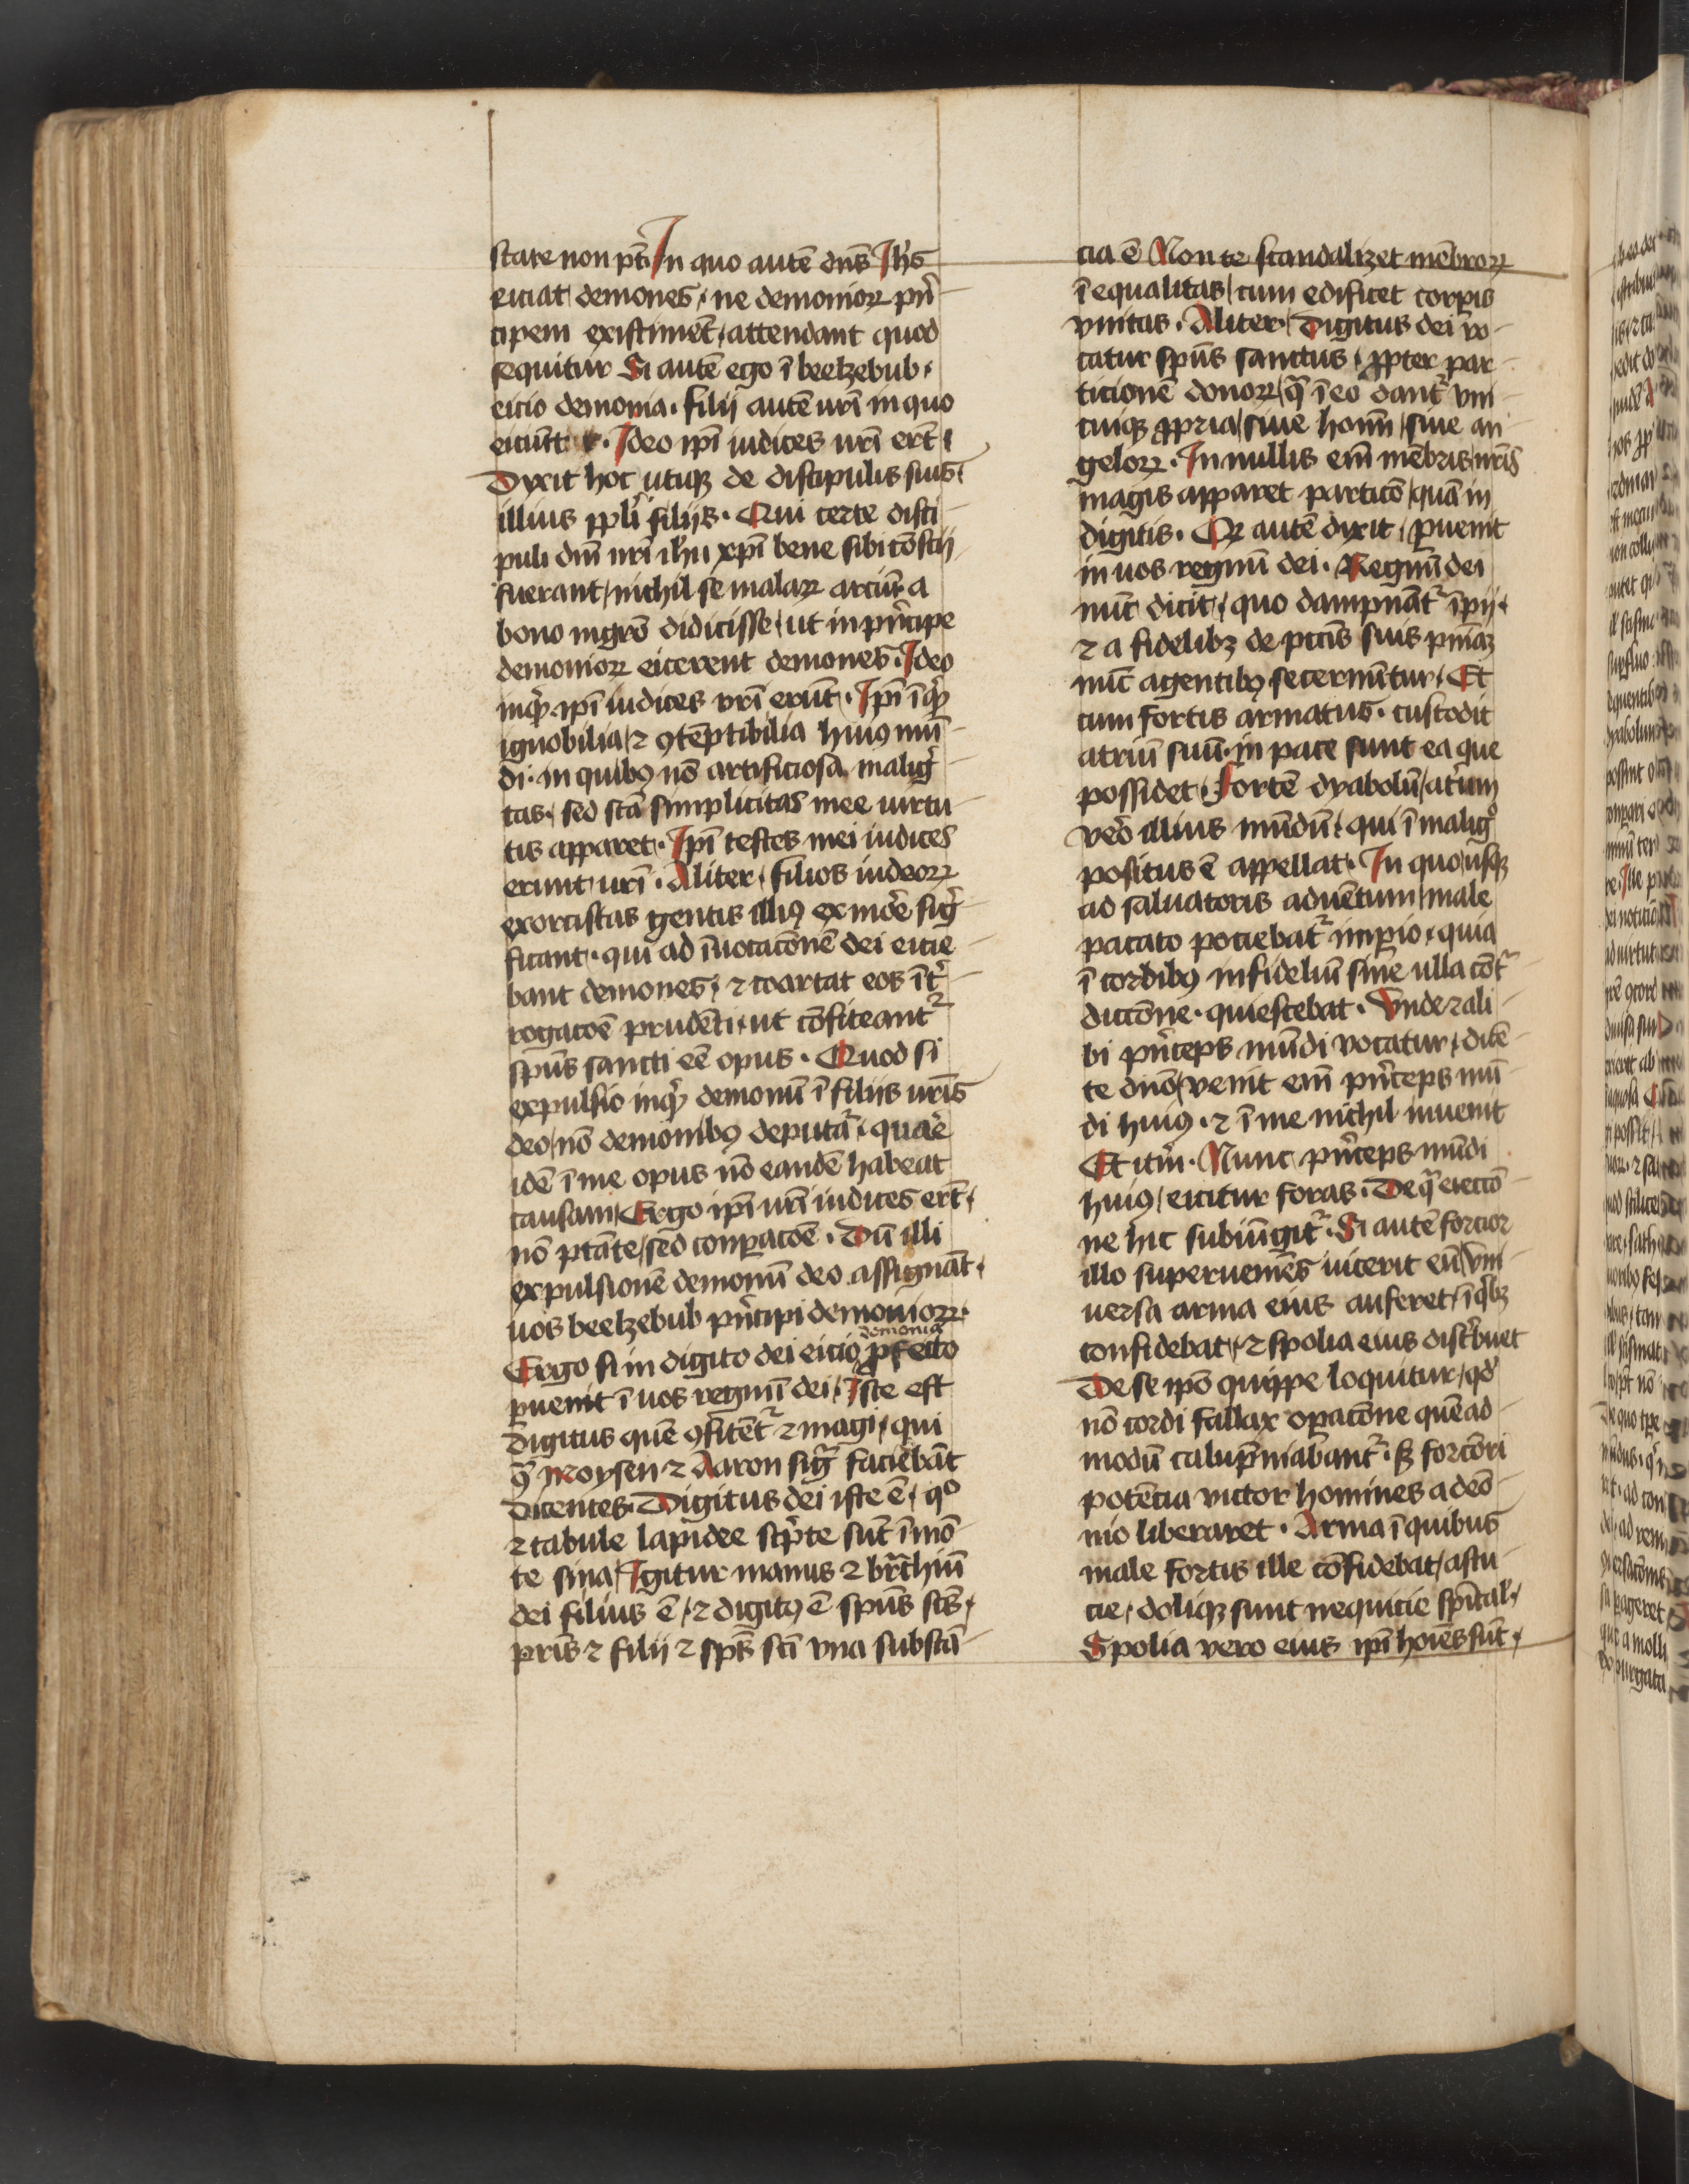 stare non pt̄. In quo autē dn̄s Ihs̄
eiciat demones, ne demonioꝝ pn̄
cipem existiment, attendant quod
sequitur Si autē ego ī beelzebub,
eicio demonia. filij autē vr̄i in quo
eiciūt. Ideo ip̄i iudices vr̄i ert̄.
Dyxit hoc utiqꝫ de discipulis suis.
illius ppl̄i filijs. Qui certe disci
puli dn̄i nr̄i ih̄u xp̄i bene sibi cōscij
fuerant, nichil se malaꝝ arciū a
bono mgr̄o didicisse, ut in pn̍cipe
demonioꝝ eicerent demones. Ideo
inq̍ ip̄i iudices vr̄i erūt. Ip̄i īq̍
ignobilia, ⁊ ꝯtēptibilia huiꝰ mū
di. in quibꝰ nō artificiosa maligͥ
tas, sed sc̄a simplicitas mee uirtu
tis apparet. Ip̄i testes mei iudices
erunt vr̄i. Aliter, filios iudeoꝝ
exorcistas gentis illiꝰ ex mōre sigͥ
ficant. qui ad īuocacōnē dei eicie
bant demones, ⁊ coartat eos īt̍
rogacōe prudēti, ut cōfiteant᷑
spūs sancti eē opus. Quod si
expulsio inq̍ demonū ī filijs vr̄is
deo, nō demonibꝰ deputat᷑, quare
idē ī me opus nō eandē habeat
causam, Ergo ip̄i vr̄i iudices ert̄,
nō ptāte, sed conꝑacōe. Dū illi
expulsionē demonū deo assignāt,
uos beelzebub pn̍cipi demonioꝝ.
demonia
Ergo si in digito dei eicio ꝓfecto
ꝑuenit ī uos regnū dei, Iste est
digitus quē ꝯfitēt᷑ ⁊ magi, qui
ꝯ̄ Moysen ⁊ Aaron sigͣ faciebāt
dicentes. Digitus dei iste ē, qͦ
⁊ tabule lapidee sc̍pte sūt ī mō
te sina, Igitur manus ⁊ br̄chiū
dei filius ē, ⁊ digitꝰ ē spūs sc̄s,
pr̄is ⁊ filij ⁊ sp̄s sc̄i vna substā
cia ē Non te scandalizet mēbroꝝ
īequalitas, cum edificet corꝑis
vnitas. Aliter. Digitus dei vo
catur spūs sanctus, ꝓpter par
ticionē donoꝝ, q̄ ī eo dant᷑ vni
cuiqꝫ ꝓpria, siue hoīm, siue an
geloꝝ. In nullis em̄ mēbris nr̄is
magis apparet particō, quā in
digitis. Qꝫ autē dyxit, ꝑuenit
in uos regnū dei. Regnū dei
nūc dicit, quo dampnāt᷑ īpij,
⁊ a fidelibꝫ de pctīs suis pn̄iaꝫ
nūc agentibꝰ secernūtur, Et
cum fortis armatus. custodit
atriū suū. in pace sunt ea que
possidet, Fortē dyabolū, atrium
vero illius mūdū, qui ī maligͦ
positus ē appellat. In quo, usqꝫ
ad saluatoris aduētum, male
pacato pociebat᷑ imꝑio, quia
ī cordibꝰ infideliū sine ulla cōt᷑
diccōne. quiescebat. Vnde ⁊ ali
bi pn̍ceps mūdi vocatur, dicē
te dnō, venit em̄ pn̍ceps mū
di huiꝰ. ⁊ ī me nichil inuenit
Et itm̄. Nunc pn̍ceps mūdi
huiꝰ, eicitur foras. De qͣ eieccō
ne hic subiūgit᷑. Si autē forcior
illo superueniēs vicerit eū, vni
uersa arma eius auferet, ī qͥbꝫ
confidebat, ⁊ spolia eius dist̍buet
De se ip̄o quippe loquitur, qd̍
nō cordi fallax oꝑacōne quēad
modū calupniabant᷑. sꝫ forcōri
potēcia victor homines a deō
nio liberaret. Arma ī quibus
male fortis ille cōfidebat, astu
cie, doliqꝫ sunt nequicie spūtal̍,
Spolia vero eius ip̄i hoīes sūt,